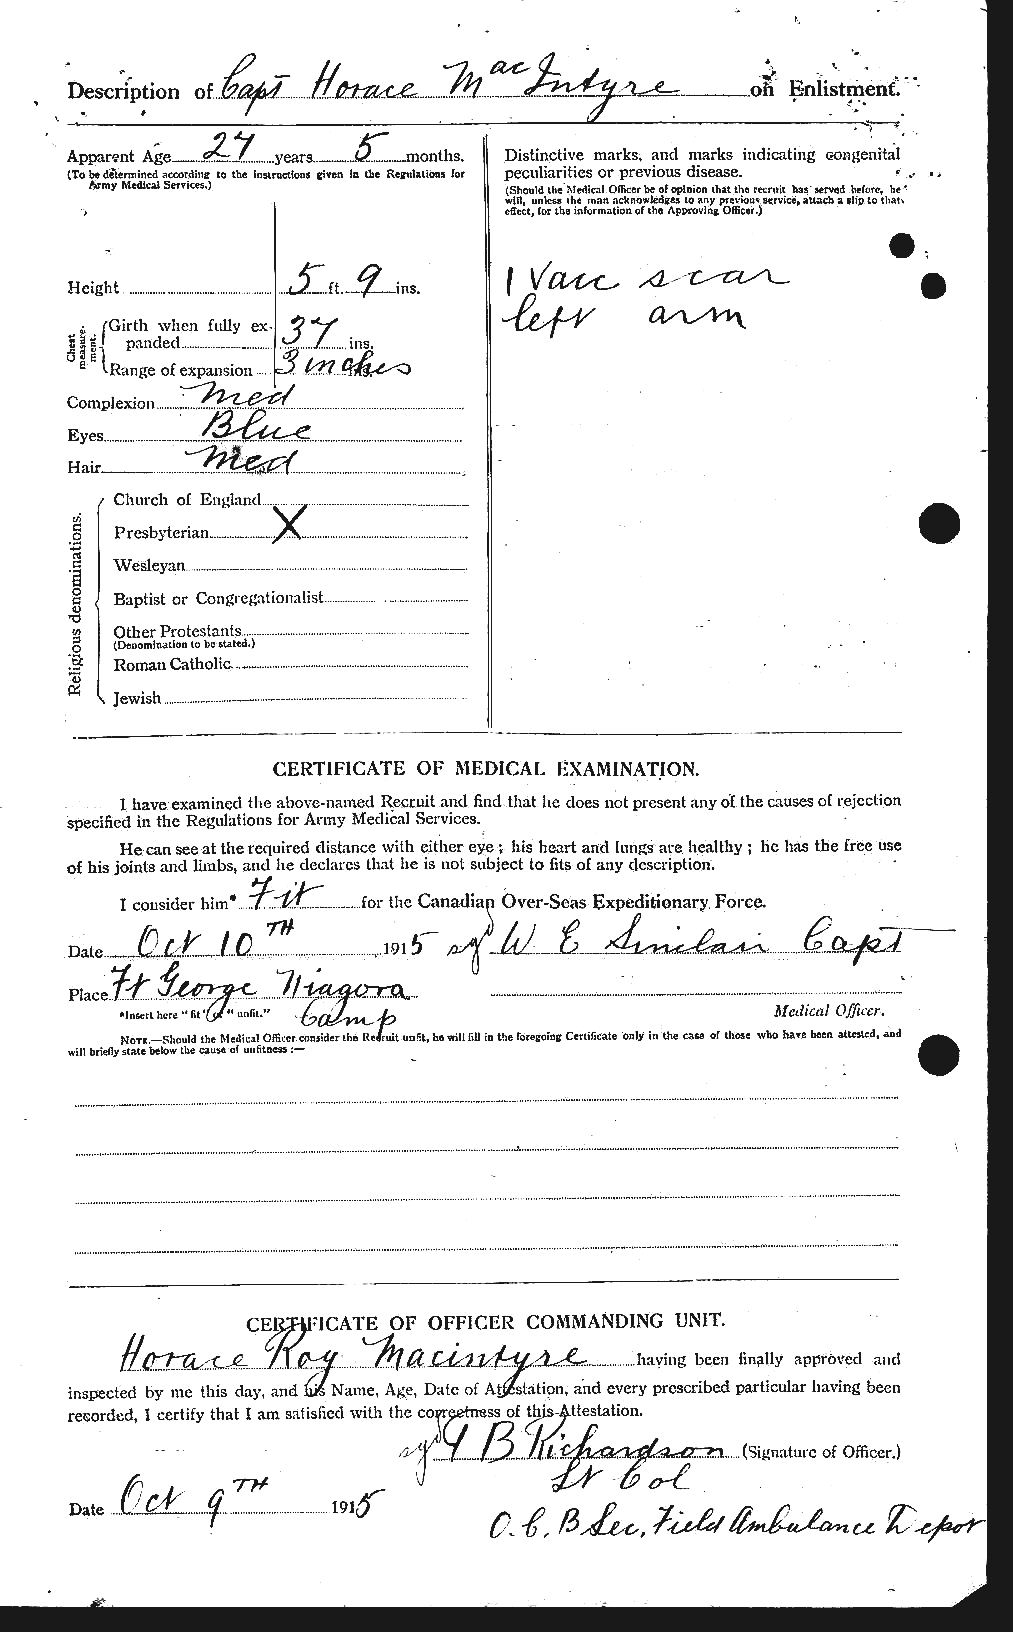 Description of Capt Horace MacIntyre on Enlistment.
Apparent Age 27 years 5 months.
(To be determined according to the instructions given in the Regulations for
Army Medical Services.)
Height 5 ft. 9 ins.
Chest measurement.
Girth when fully ex-
panded 37 ins.
Range of expansion 3 inches ins.
Complexion Med
Eyes Blue
Hair Med
Religious denominations.
Church of England
Presbyterian X
Wesleyan
Baptist or Congregationalist
Other Protestants
(Denomination to be stated.)
Roman Catholic
Jewish
Distinctive marks, and marks indicating congenital
peculiarities or previous disease.
(Should the Medical Officer be of opinion that the recruit has served before, he
will, unless the man acknowledges to any previous service, attach a slip to that
effect, for the information of the Approving Officer.)
1 Vacc scar
left arm
CERTIFICATE OF MEDICAL EXAMINATION.
I have examined the above-named Recruit and find that he does not present any of the causes of rejection
specified in the Regulations for Army Medical Services.
He can see at the required distance with either eye ; his heart and lungs are healthy ; he has the free use
of his joints and limbs, and he declares that he is not subject to fits of any description.
I consider him* Fit for the Canadian Over-Seas Expeditionary Force.
Date Oct 10TH 1915 sgd W E Sinclair Capt
Place Ft George Niagora
Medical Officer.
*Insert here "fit" or "unfit." Camp
NOTE.—Should the Medical Officer consider the Recruit unfit, he will fill in the foregoing Certificate only in the case of those who have been attested, and
will briefly state below the cause of unfitness :—
CERTIFICATE OF OFFICER COMMANDING UNIT.
Horace Roy Macintyre having been finally approved and
inspected by me this day, and his Name, Age, Date of Attestation, and every prescribed particular having been
recorded, I certify that I am satisfied with the correctness of this Attestation.
sgd B Richardson (Signature of Officer.)
Lt Col
Date Oct 9TH 1915
O.C. B Sec, Field Ambulance Depot